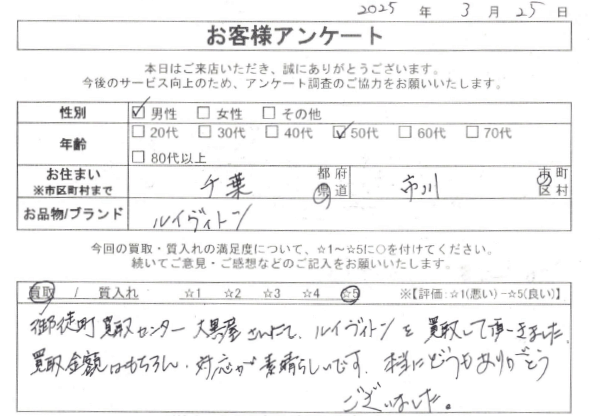 2025 年 3 月 25 日
お客様アンケート
本日はご来店いただき、誠にありがとうございます。
今後のサービス向上のため、アンケート調査のご協力をお願いいたします。
性別 ☑男性 □女性 □その他
年齢 □20代 □30代 □40代 ☑50代 □60代 □70代
□80代以上
お住まい ※市区町村まで 千葉 都府県道 市川 市町区村
お品物/ブランド ルイヴィトン
今回の買取・質入れの満足度について、☆1〜☆5に○を付けてください。
続いてご意見・ご感想などのご記入をお願いいたします。
買取 / 質入れ ☆1 ☆2 ☆3 ☆4 ☆5 ※【評価:☆1(悪い)−☆5(良い)】
御徒町買取センター大黒屋さんにて、ルイヴィトンを買取して頂きました。
買取金額はもちろん、対応が素晴らしいです。本当にどうもありがとう
ございました。